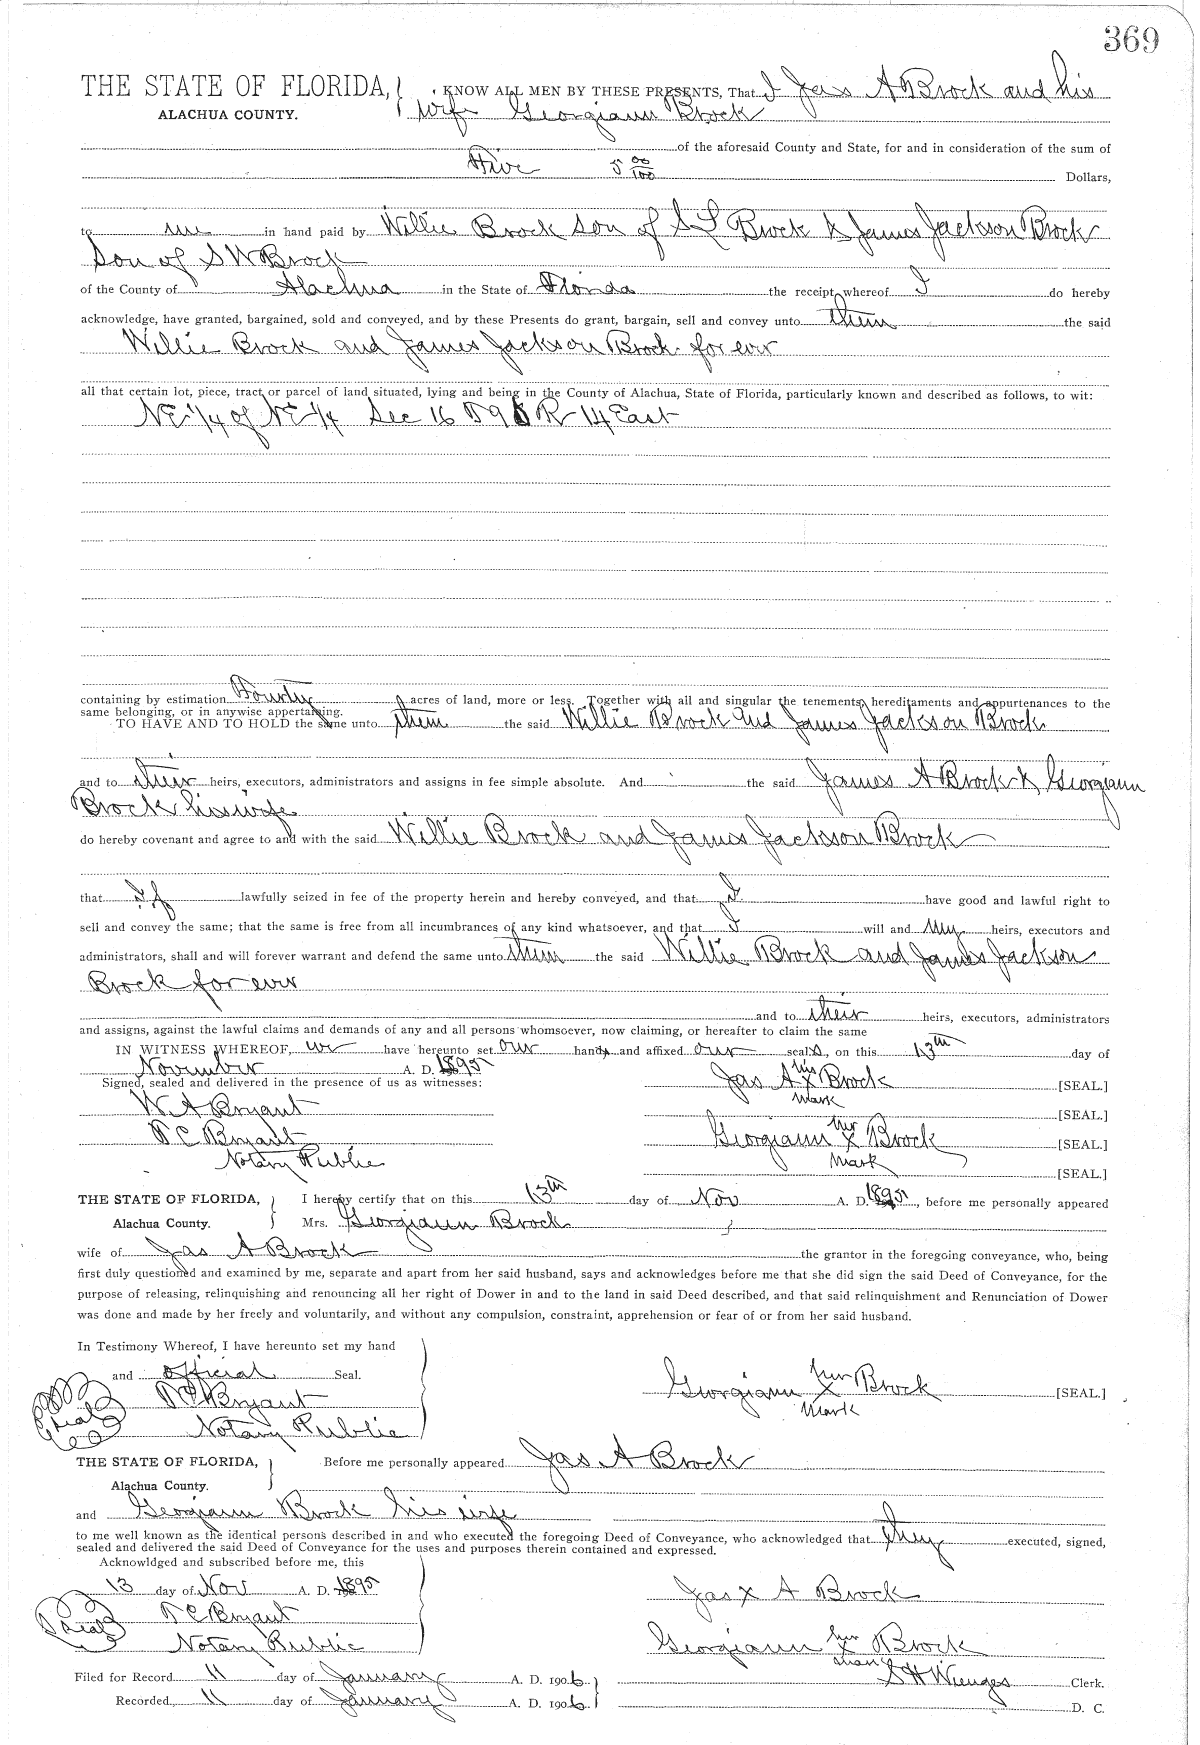 369
THE STATE OF FLORIDA, KNOW ALL MEN BY THESE PRESENTS, That I Jas A Brock and his
ALACHUA COUNTY. wife Georgiann Brock
of the aforesaid County and State, for and in consideration of the sum of
Five 5 00/100 Dollars,
to me in hand paid by Willie Brock Son of S L Brock & James Jackson Brock
Son of S W Brock
of the County of Alachua in the State of Florida the receipt whereof I do hereby
acknowledge, have granted, bargained, sold and conveyed, and by these Presents do grant, bargain, sell and convey unto them the said
Willie Brock and James Jackson Brock for ever
all that certain lot, piece, tract or parcel of land situated, lying and being in the County of Alachua, State of Florida, particularly known and described as follows, to wit:
NE 1/4 of NE 1/4 Sec 16 T 9 S R 14 East
containing by estimation Fourty acres of land, more or less. Together with all and singular the tenements, hereditaments and appurtenances to the
same belonging, or in anywise appertaining.
TO HAVE AND TO HOLD the same unto them the said Willie Brock and James Jackson Brock
and to their heirs, executors, administrators and assigns in fee simple absolute. And the said James A Brock & Georgiann
Brock his wife
do hereby covenant and agree to and with the said Willie Brock and James Jackson Brock
that lawfully seized in fee of the property herein and hereby conveyed, and that I have good and lawful right to
sell and convey the same; that the same is free from all incumbrances of any kind whatsoever, and that I will and my heirs, executors and
administrators, shall and will forever warrant and defend the same unto them the said Willie Brock and James Jackson
Brock for ever
and to their heirs, executors, administrators
and assigns, against the lawful claims and demands of any and all persons whomsoever, now claiming, or hereafter to claim the same
IN WITNESS WHEREOF, we have hereunto set our hands and affixed our seals, on this 13th day of
November A. D. 1895
Signed, sealed and delivered in the presence of us as witnesses: Jas A his x mark Brock [SEAL.]
W A Bryant [SEAL.]
T C Bryant Georgiann her x mark Brock [SEAL.]
Notary Public [SEAL.]
THE STATE OF FLORIDA, I hereby certify that on this 13th day of Nov A. D. 1895, before me personally appeared
Alachua County. Mrs. Georgiann Brock
wife of Jas A Brock the grantor in the foregoing conveyance, who, being
first duly questioned and examined by me, separate and apart from her said husband, says and acknowledges before me that she did sign the said Deed of Conveyance, for the
purpose of releasing, relinquishing and renouncing all her right of Dower in and to the land in said Deed described, and that said relinquishment and Renunciation of Dower
was done and made by her freely and voluntarily, and without any compulsion, constraint, apprehension or fear of or from her said husband.
In Testimony Whereof, I have hereunto set my hand
and official Seal. Georgiann her x mark Brock [SEAL.]
Seal T C Bryant
Notary Public
THE STATE OF FLORIDA, Before me personally appeared Jas A Brock
Alachua County.
and Georgiann Brock his wife
to me well known as the identical persons described in and who executed the foregoing Deed of Conveyance, who acknowledged that they executed, signed,
sealed and delivered the said Deed of Conveyance for the uses and purposes therein contained and expressed.
Acknowldged and subscribed before me, this
13 day of Nov A. D. 1895 Jas x A Brock
Seal T C Bryant
Notary Public Georgiann her x mark Brock
Filed for Record 11 day of January A. D. 1906 S H Wienges Clerk.
Recorded 11 day of January A. D. 1906 D. C.